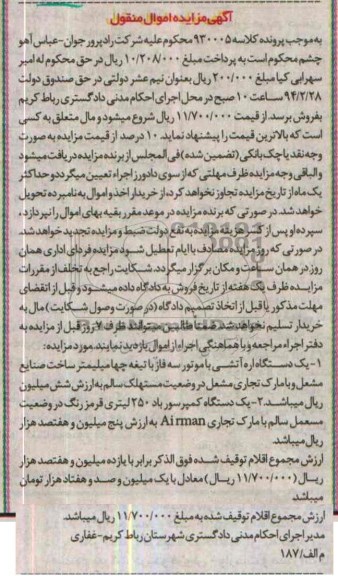 آگهی مزایده اموال منقول
به موجب پرونده کلاسه ۹۳۰۰۰۵ محکوم علیه شرکت رادپرور جوان-عباس آهو
چشم محکوم است به پرداخت مبلغ ۱۰/۲۰۸/۰۰۰ ریال در حق محکوم له امیر
سهرابی کیا مبلغ ۲۰۰/۰۰۰ ریال بعنوان نیم عشر دولتی در حق صندوق دولت
۹۴/۲/۲۸ ساعت ۱۰ صبح در محل اجرای احکام مدنی دادگستری رباط کریم
بفروش برسد. از قیمت ۱۱/۷۰۰/۰۰۰ ریال شروع میشود و مال متعلق به کسی
است که بالاترین قیمت را پیشنهاد نماید. ۱۰ درصد از قیمت مزایده به صورت
وجه نقد یا چک بانکی (تضمین شده) فی المجلس از برنده مزایده دریافت میشود
و الباقی وجه مزایده ظرف مهلتی که از سوی دادورز اجراء تعیین میگردد و حداکثر
یک ماه از تاریخ مزایده تجاوز نخواهد کرد، از خریدار اخذ و اموال به نامبرده تحویل
خواهد شد. در صورتی که برنده مزایده در موعد مقرر بقیه بهای اموال را نپردازد،
سپرده او پس از کسر هزینه مزایده به نفع دولت ضبط و مزایده تجدید خواهد شد.
در صورتی که روز مزایده مصادف با ایام تعطیل شود مزایده فردای اداری همان
روز در همان ساعت و مکان برگزار میگردد. شکایت راجع به تخلف از مقررات
مزایده ظرف یک هفته از تاریخ فروش به دادگاه داده میشود و قبل از انقضای
مهلت مذکور یا قبل از اتخاذ تصمیم دادگاه (در صورت وصول شکایت) مال به
خریدار تسلیم نخواهد شد. ضمنا طالبین میتوانند ظرف ۷ روز قبل از مزایده به
دفتر اجراء مراجعه و با هماهنگی اجراء از اموال بازدید نمایند. مورد مزایده:
۱- یک دستگاه اره آتشی با موتور سه فاز با تیغه چهار میلیمتر ساخت صنایع
مشعل و با مارک تجاری مشعل در وضعیت مستهلک سالم به ارزش شش میلیون
ریال میباشد. ۲- یک دستگاه کمپرسور باد ۲۵۰ لیتری قرمز رنگ در وضعیت
مستعمل سالم با مارک تجاری Airman به ارزش پنج میلیون و هفتصد هزار
ریال میباشد.
ارزش مجموع اقلام توقیف شده فوق الذکر برابر با یازده میلیون و هفتصد هزار
ریال (۱۱/۷۰۰/۰۰۰ ریال) معادل با یک میلیون و صد و هفتاد هزار تومان
میباشد
ارزش مجموع اقلام توقیف شده به مبلغ ۱۱/۷۰۰/۰۰۰ ریال میباشد.
مدیر اجرای احکام مدنی دادگستری شهرستان رباط کریم-غفاری
م الف/۱۸۷